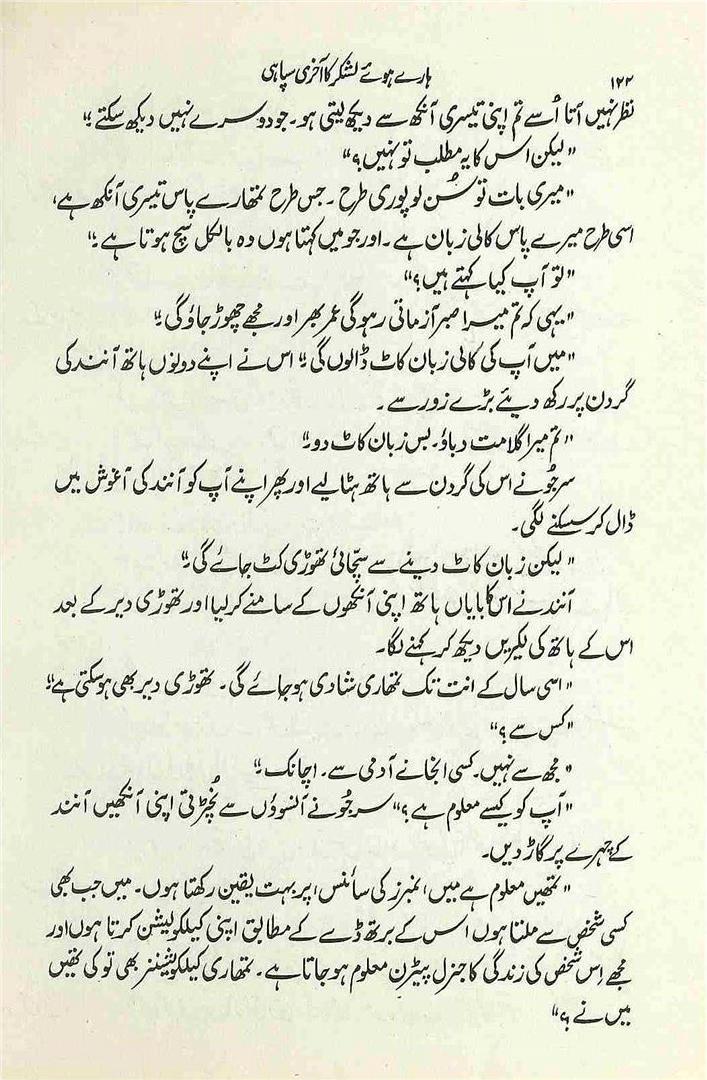 ۱۲۲ ہارے ہوئے لشکر کا آخری سپاہی
نظر نہیں آتا اُسے تم اپنی تیسری آنکھ سے دیکھ لیتی ہو۔ جو دوسرے نہیں دیکھ سکتے۔"
"لیکن اس کا یہ مطلب تو نہیں؟"
"میری بات تو سُن لو پوری طرح۔ جس طرح تمھارے پاس تیسری آنکھ ہے،
اسی طرح میرے پاس کالی زبان ہے۔ اور جو میں کہتا ہوں وہ بالکل سچ ہوتا ہے۔"
"تو آپ کیا کہتے ہیں؟"
"یہی کہ تم میرا صبر آزماتی رہو گی عمر بھر اور مجھے چھوڑ جاؤ گی۔"
"میں آپ کی کالی زبان کاٹ ڈالوں گی۔" اس نے اپنے دونوں ہاتھ آنند کی
گردن پر رکھ دیئے بڑے زور سے۔
"تم میرا گلا مت دباؤ۔ بس زبان کاٹ دو۔"
سرجُو نے اس کی گردن سے ہاتھ ہٹا لیے اور پھر اپنے آپ کو آنند کی آغوش میں
ڈال کر سسکنے لگی۔
"لیکن زبان کاٹ دینے سے سچّائی تھوڑی کٹ جائے گی۔"
آنند نے اس کا بایاں ہاتھ اپنی آنکھوں کے سامنے کر لیا اور تھوڑی دیر کے بعد
اس کے ہاتھ کی لکیریں دیکھ کر کہنے لگا۔
"اسی سال کے انت تک تمھاری شادی ہو جائے گی۔ تھوڑی دیر بھی ہو سکتی ہے۔"
"کس سے؟"
"مجھ سے نہیں۔ کسی انجانے آدمی سے۔ اچانک۔"
"آپ کو کیسے معلوم ہے؟" سرجُو نے آنسوؤں سے نُچڑتی اپنی آنکھیں آنند
کے چہرے پر گاڑ دیں۔
"تمھیں معلوم ہے میں 'نمبرز کی سائنس' پر بہت یقین رکھتا ہوں۔ میں جب بھی
کسی شخص سے ملتا ہوں اس کے برتھ ڈے کے مطابق اپنی کیلکولیشن کرتا ہوں اور
مجھے اِس شخص کی زندگی کا جنرل پیٹرن معلوم ہو جاتا ہے۔ تمھاری کیلکولیشنز بھی تو کی تھیں
میں نے؟"